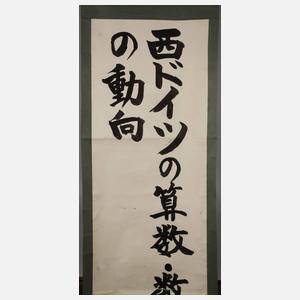 西ドイツの算数・数
の動向